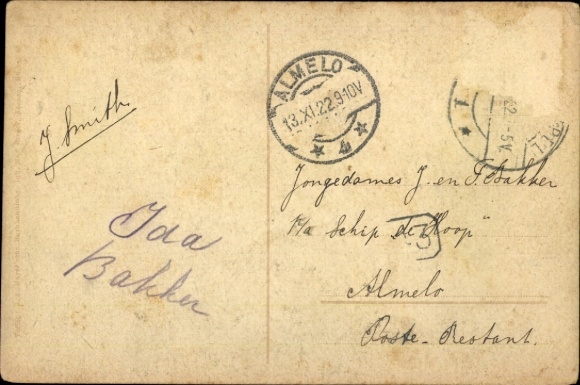 J Smith
Ida
Bakker
ALMELO
13.XI.22.9-10V
4
1
22.-5V.
Jongedames J. en T. Bakker
P/a Schip "de Hoop"
Almelo
Poste-Restant.